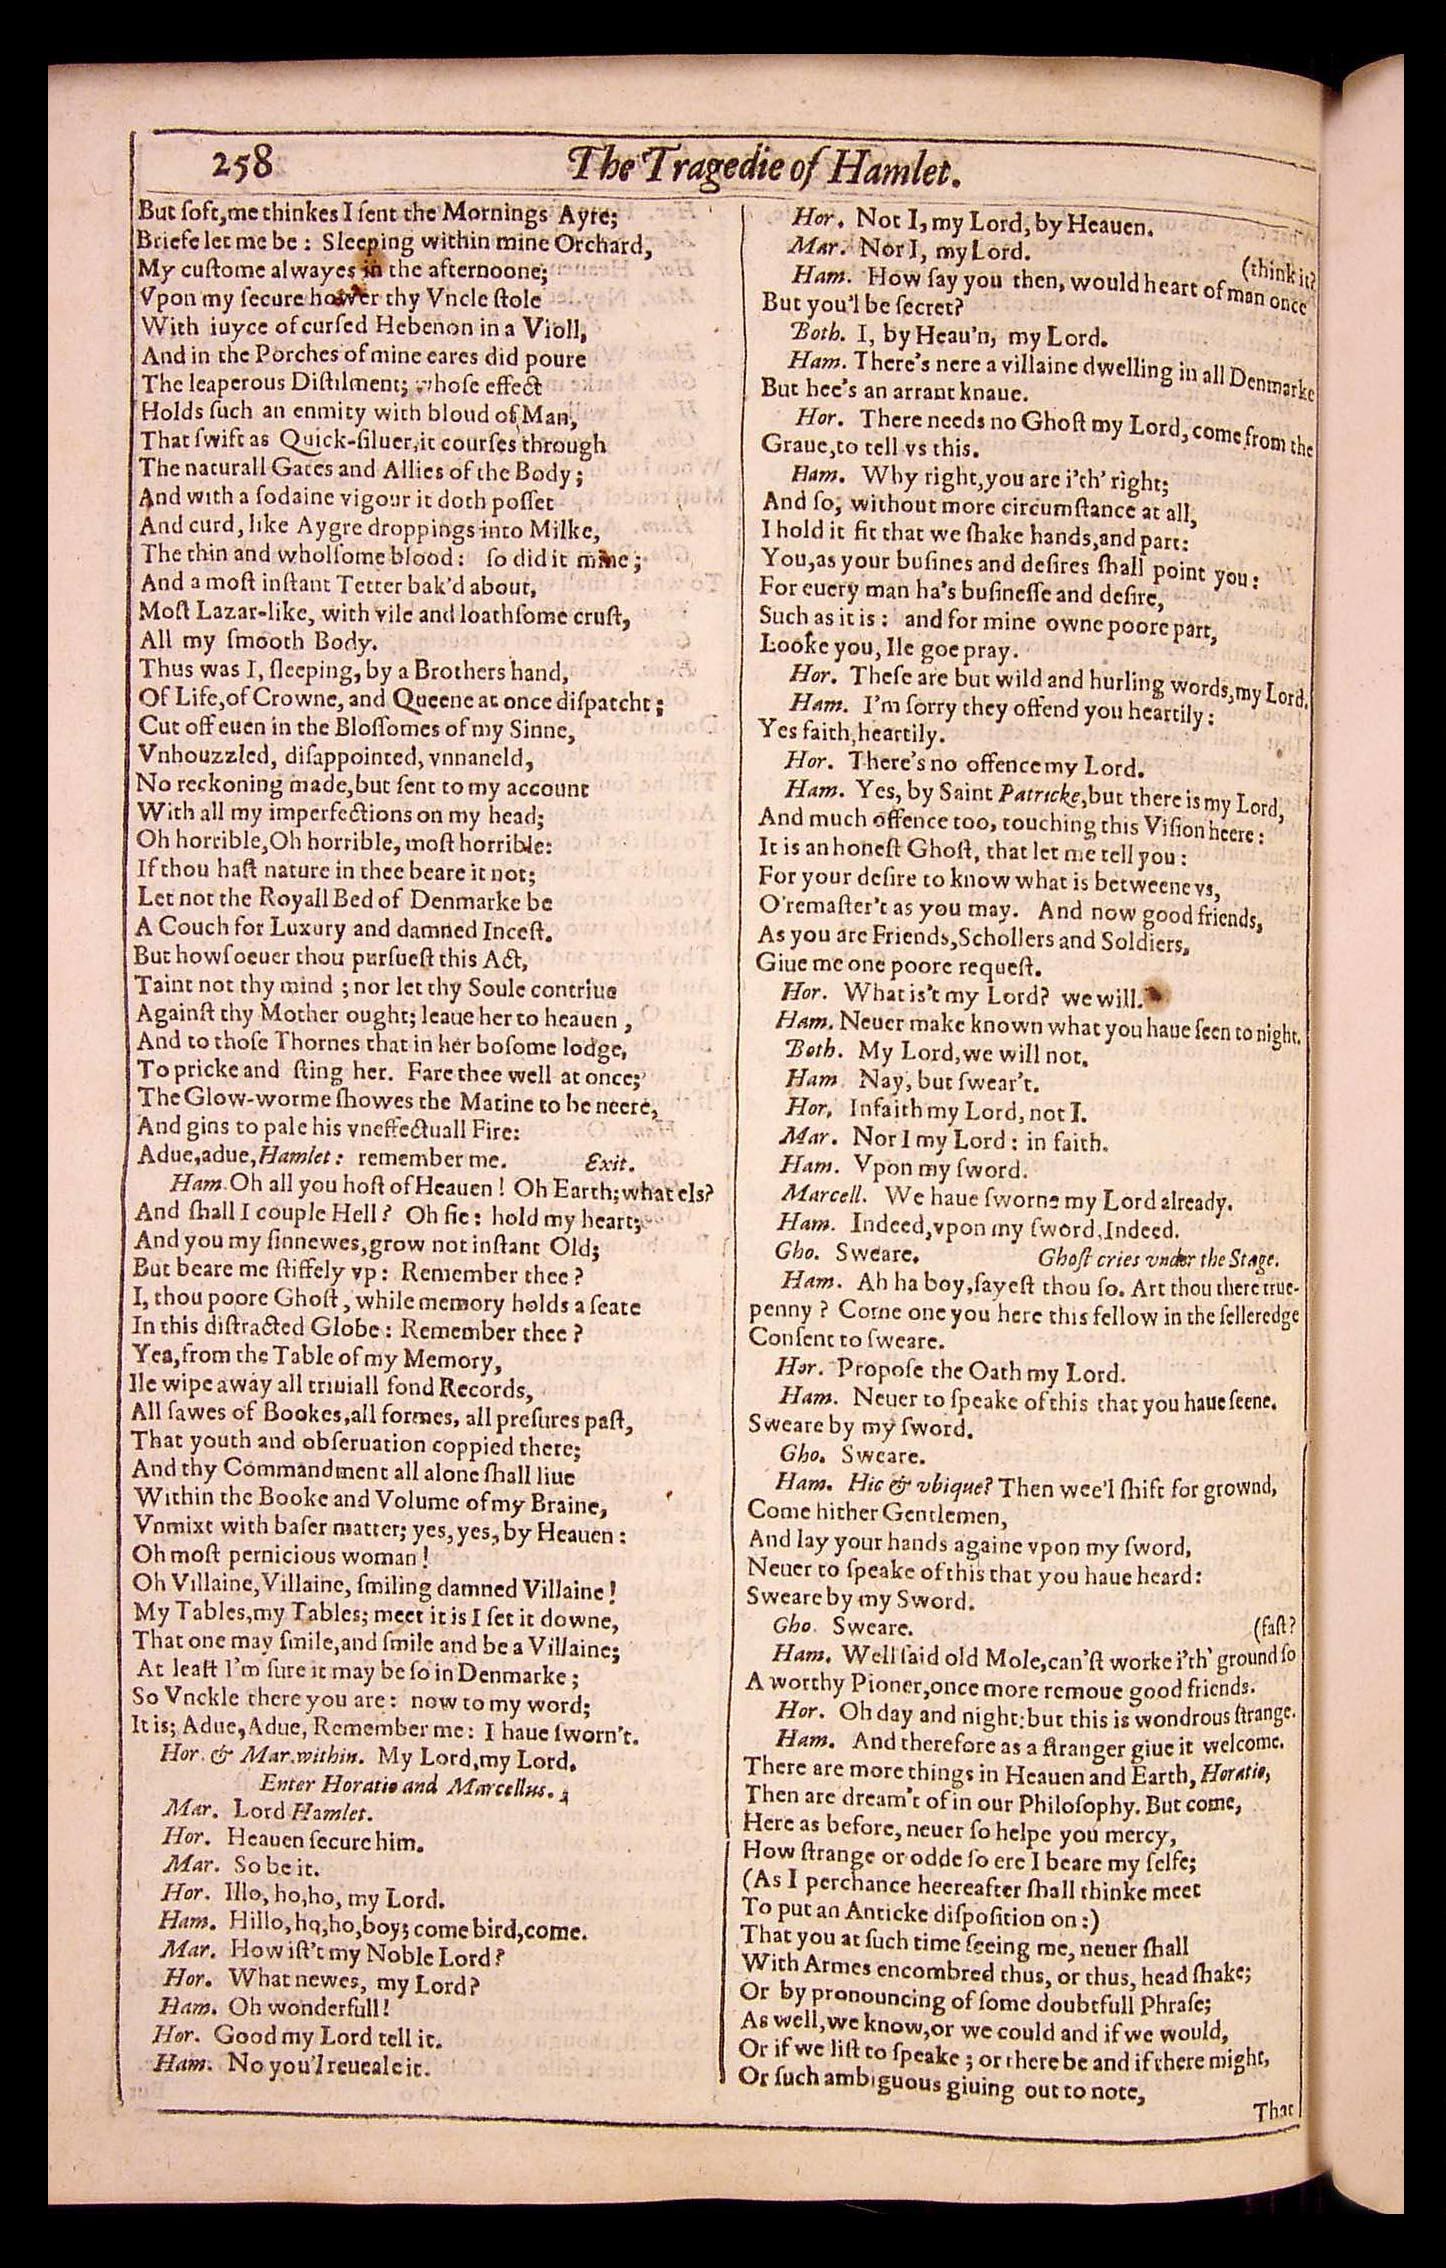 258
The Tragedie of Hamlet.
But ſoft, me thinkes I ſent the Mornings Ayre;
Briefe let me be: Sleeping within mine Orchard,
My cuſtome alwayes in the afternoone;
Vpon my ſecure hower thy Vncle ſtole
With iuyce of curſed Hebenon in a Violl,
And in the Porches of mine eares did poure
The leaperous Diſtilment; whoſe effect
Holds ſuch an enmity with bloud of Man,
That ſwift as Quick-ſiluer, it courſes through
The naturall Gates and Allies of the Body;
And with a ſodaine vigour it doth poſſet
And curd, like Aygre droppings into Milke,
The thin and wholſome blood: ſo did it mine;
And a moſt inſtant Tetter bak'd about,
Moſt Lazar-like, with vile and loathſome cruſt,
All my ſmooth Body.
Thus was I, ſleeping, by a Brothers hand,
Of Life, of Crowne, and Queene at once diſpatcht;
Cut off euen in the Bloſſomes of my Sinne,
Vnhouzzled, diſappointed, vnnaneld,
No reckoning made, but ſent to my account
With all my imperfections on my head;
Oh horrible, Oh horrible, moſt horrible:
If thou haſt nature in thee beare it not;
Let not the Royall Bed of Denmarke be
A Couch for Luxury and damned Inceſt.
But howſoeuer thou purſueſt this Act,
Taint not thy mind; nor let thy Soule contriue
Againſt thy Mother ought; leaue her to heauen,
And to thoſe Thornes that in her boſome lodge,
To pricke and ſting her. Fare thee well at once;
The Glow-worme ſhowes the Matine to be neere,
And gins to pale his vneffectuall Fire:
Adue, adue, Hamlet: remember me. Exit.
Ham. Oh all you hoſt of Heauen! Oh Earth; what els?
And ſhall I couple Hell? Oh fie: hold my heart;
And you my ſinnewes, grow not inſtant Old;
But beare me ſtiffely vp: Remember thee?
I, thou poore Ghoſt, while memory holds a ſeate
In this diſtracted Globe: Remember thee?
Yea, from the Table of my Memory,
Ile wipe away all triuiall fond Records,
All ſawes of Bookes, all formes, all preſures paſt,
That youth and obſeruation coppied there;
And thy Commandment all alone ſhall liue
Within the Booke and Volume of my Braine,
Vnmixt with baſer matter; yes, yes, by Heauen:
Oh moſt pernicious woman!
Oh Villaine, Villaine, ſmiling damned Villaine!
My Tables, my Tables; meet it is I ſet it downe,
That one may ſmile, and ſmile and be a Villaine;
At leaſt I'm ſure it may be ſo in Denmarke;
So Vnckle there you are: now to my word;
It is; Adue, Adue, Remember me: I haue ſworn't.
Hor. & Mar. within. My Lord, my Lord.
Enter Horatio and Marcellus.
Mar. Lord Hamlet.
Hor. Heauen ſecure him.
Mar. So be it.
Hor. Illo, ho, ho, my Lord.
Ham. Hillo, ho, ho, boy; come bird, come.
Mar. How iſt't my Noble Lord?
Hor. What newes, my Lord?
Ham. Oh wonderfull!
Hor. Good my Lord tell it.
Ham. No you'l reueale it.
Hor. Not I, my Lord, by Heauen.
Mar. Nor I, my Lord.
(think it?
Ham. How ſay you then, would heart of man once
But you'l be ſecret?
Both. I, by Heau'n, my Lord.
Ham. There's nere a villaine dwelling in all Denmarke
But hee's an arrant knaue.
Hor. There needs no Ghoſt my Lord, come from the
Graue, to tell vs this.
Ham. Why right, you are i'th' right;
And ſo, without more circumſtance at all,
I hold it fit that we ſhake hands, and part:
You, as your buſines and deſires ſhall point you:
For euery man ha's buſineſſe and deſire,
Such as it is: and for mine owne poore part,
Looke you, Ile goe pray.
Hor. Theſe are but wild and hurling words, my Lord.
Ham. I'm ſorry they offend you heartily:
Yes faith, heartily.
Hor. There's no offence my Lord.
Ham. Yes, by Saint Patricke, but there is my Lord,
And much offence too, touching this Viſion heere:
It is an honeſt Ghoſt, that let me tell you:
For your deſire to know what is betweene vs,
O'remaſter't as you may. And now good friends,
As you are Friends, Schollers and Soldiers,
Giue me one poore requeſt.
Hor. What is't my Lord? we will.
Ham. Neuer make known what you haue ſeen to night.
Both. My Lord, we will not.
Ham Nay, but ſwear't.
Hor, Infaith my Lord, not I.
Mar. Nor I my Lord: in faith.
Ham. Vpon my ſword.
Marcell. We haue ſworne my Lord already.
Ham. Indeed, vpon my ſword, Indeed.
Gho. Sweare. Ghoſt cries vnder the Stage.
Ham. Ah ha boy, ſayeſt thou ſo. Art thou there true-
penny? Come one you here this fellow in the ſelleredge
Conſent to ſweare.
Hor. Propoſe the Oath my Lord.
Ham. Neuer to ſpeake of this that you haue ſeene.
Sweare by my ſword.
Gho. Sweare.
Ham. Hic & vbique? Then wee'l ſhift for grownd,
Come hither Gentlemen,
And lay your hands againe vpon my ſword,
Neuer to ſpeake of this that you haue heard:
Sweare by my Sword.
Gho. Sweare. (faſt?
Ham. Well ſaid old Mole, can'ſt worke i'th' ground ſo
A worthy Pioner, once more remoue good friends.
Hor. Oh day and night: but this is wondrous ſtrange.
Ham. And therefore as a ſtranger giue it welcome.
There are more things in Heauen and Earth, Horatio,
Then are dream't of in our Philoſophy. But come,
Here as before, neuer ſo helpe you mercy,
How ſtrange or odde ſo ere I beare my ſelfe;
(As I perchance heereafter ſhall thinke meet
To put an Anticke diſpoſition on:)
That you at ſuch time ſeeing me, neuer ſhall
With Armes encombred thus, or thus, head ſhake;
Or by pronouncing of ſome doubtfull Phraſe;
As well, we know, or we could and if we would,
Or if we liſt to ſpeake; or there be and if there might,
Or ſuch ambiguous giuing out to note,
That